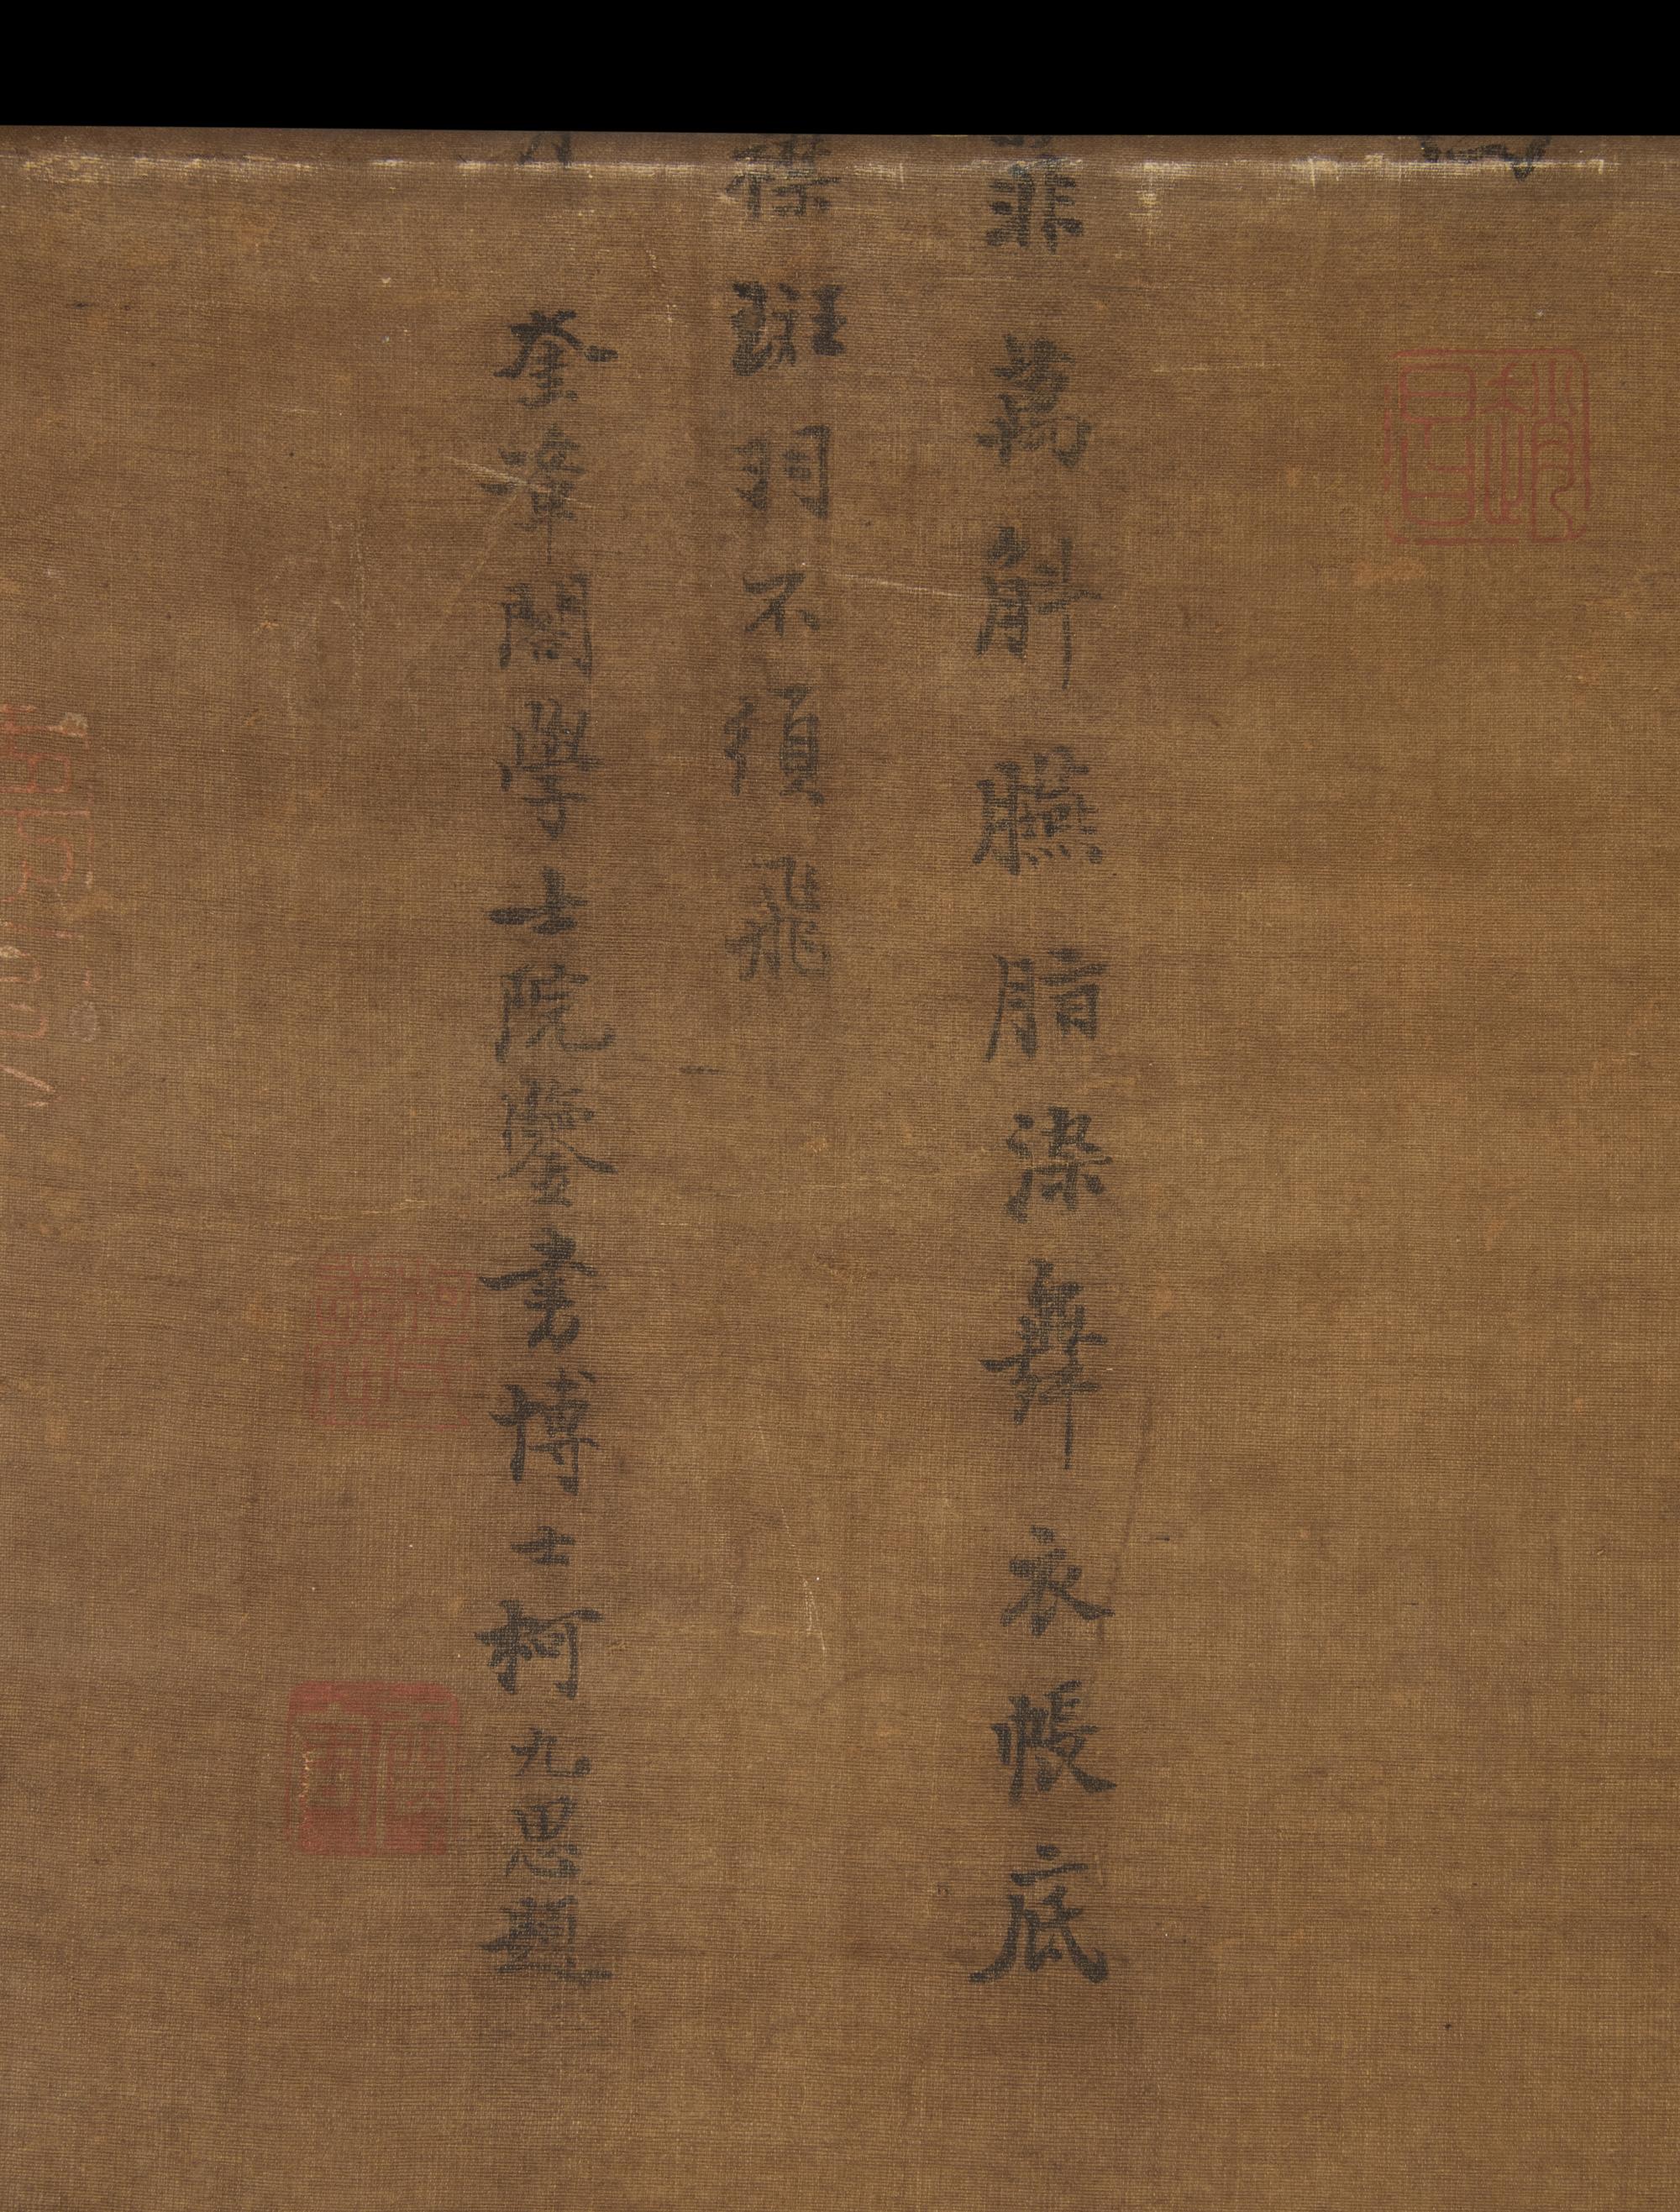 菲萬斛臙脂染舞衣帳底
襟斑羽不須飛
奎章閣學士院鑒書博士柯九思題